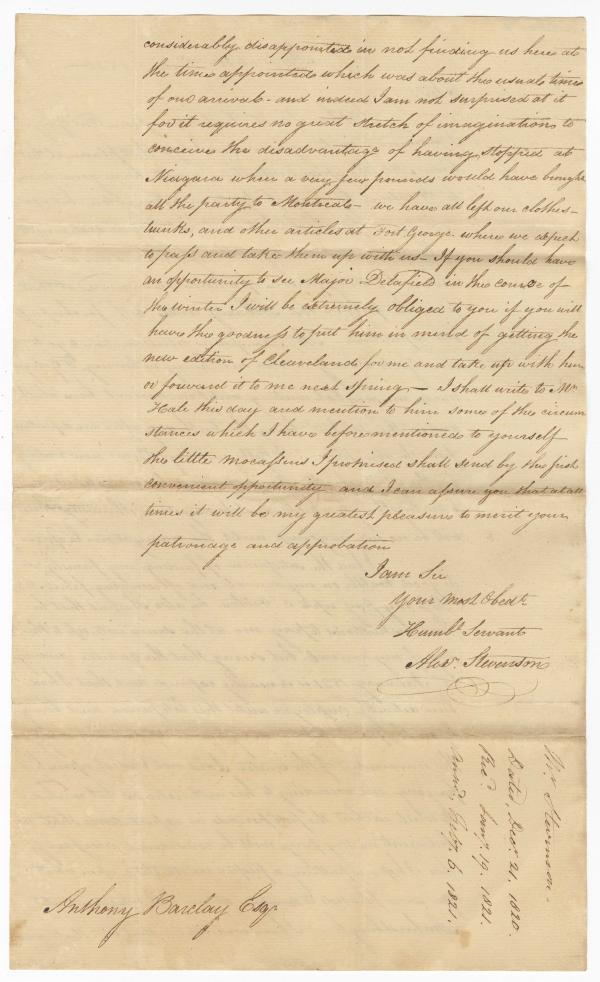 considerably disappointed in not finding us here at
the time appointed which was about the usual time
of our arrival - and indeed I am not surprised at it
for it requires no great stretch of imagination to
conceive the disadvantage of having stopped at
Niagara when a very few pounds would have brought
all the party to Montreal - we have all left our clothes -
trunks, and other articles at Fort George where we expect
to pass and take them up with us - If you should have
an opportunity to see Major Delafield in the course of
the winter I will be extremely obliged to you if you will
have the goodness to put him in mind of getting the
new edition of Cleaveland for me and take up with him
or forward it to me next spring - I shall write to Mr
Hale this day and mention to him some of the circum
stances which I have before mentioned to yourself
the little mocassens I promised shall send by the first
convenient opportunity and I can assure you that at all
times it will be my greatest pleasure to merit your
patronage and approbation
I am Sir
Your Most Obedt
Humbl Servant
Alexr. Stevenson
Anthony Barclay Esqr
Mr. Stevenson -
Dated, Decr. 21. 1820.
Recd. Jany. 19. 1821.
Answd. Feby. 6. 1821.